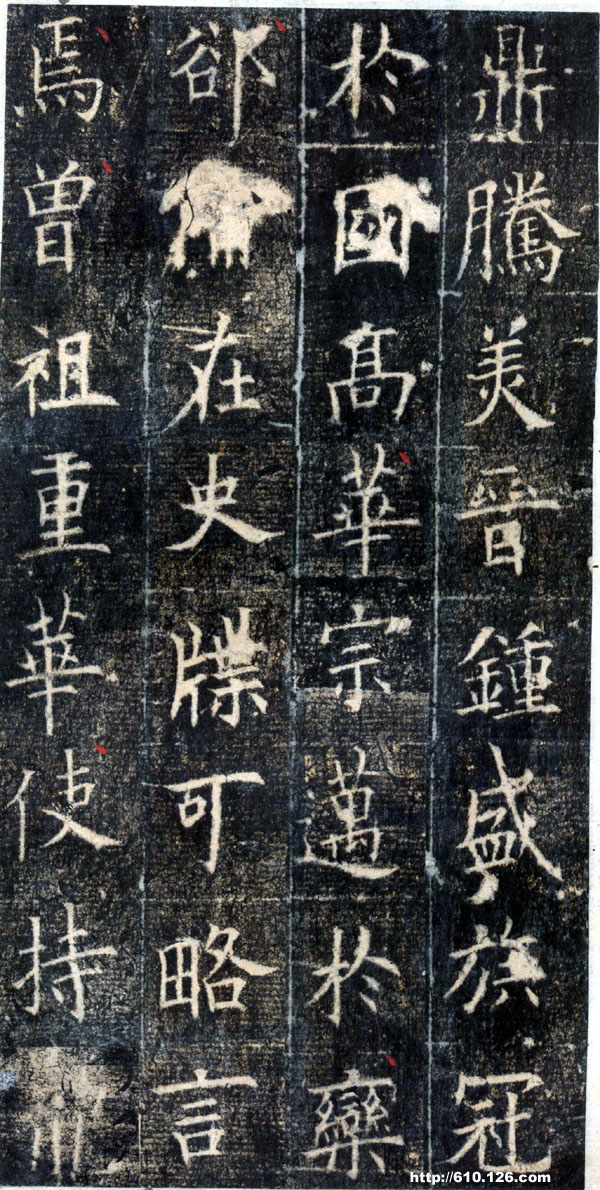 鼎騰美晉鍾盛族冠
於國高華宗邁於欒
郤在史牒可略言
焉曾祖重華使持
http://610.126.com